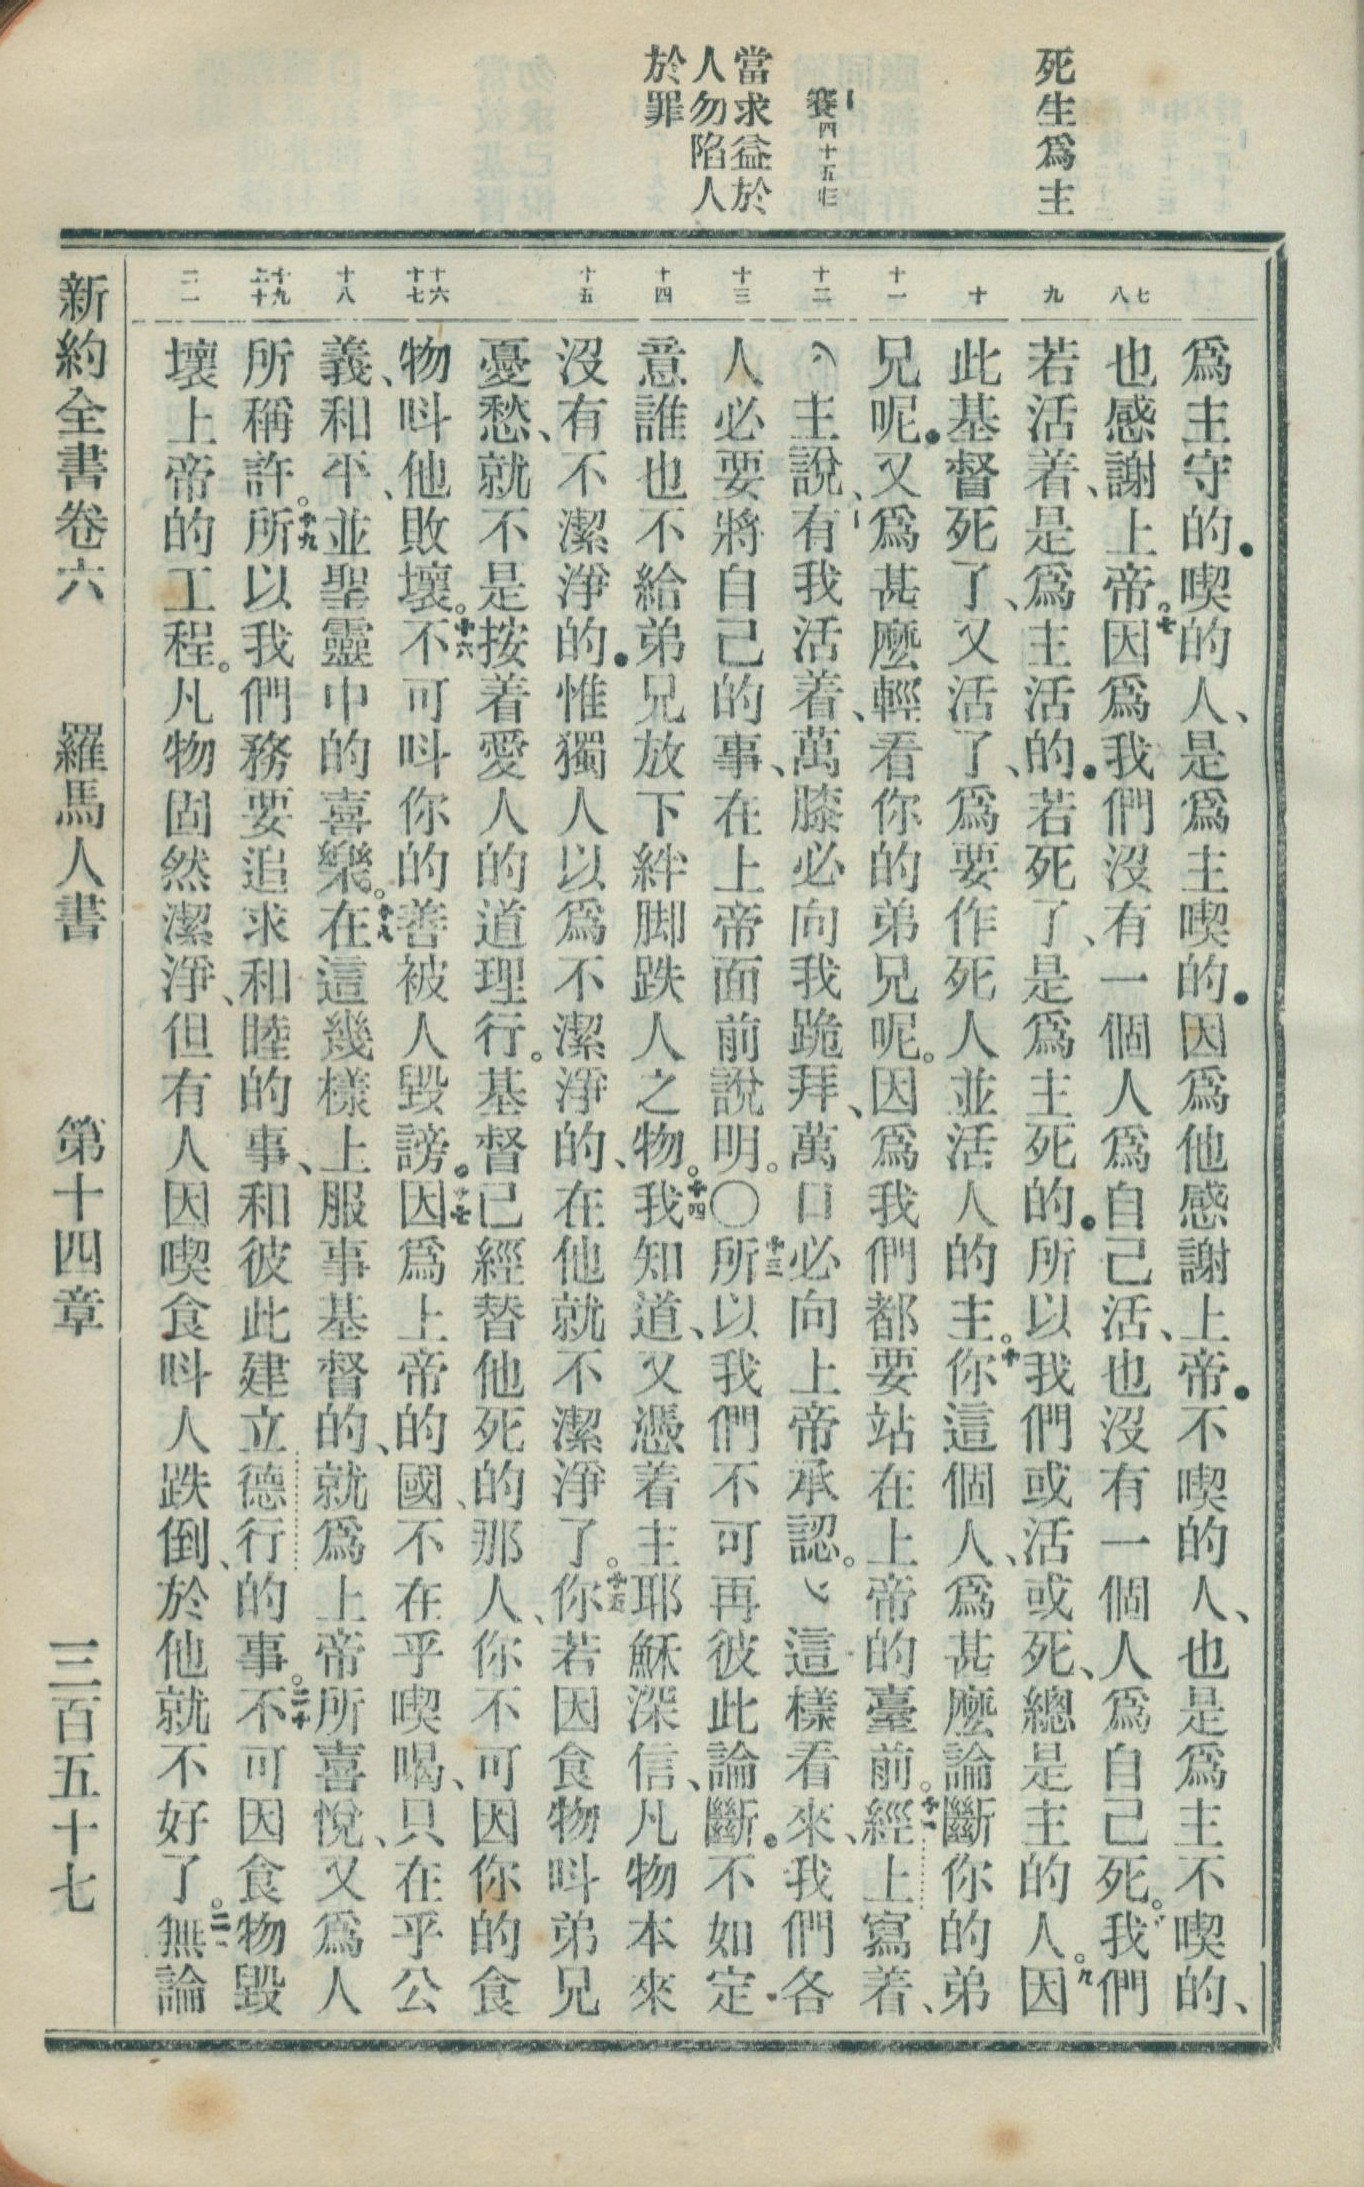 死生爲主
賽四十五
當求益於
人勿陷人
於罪
七
八
九
十
十一
十二
十三
十四
十五
十六
十七
十八
十九
二十
二一
爲主守的●喫的人、是爲主喫的●因爲他感謝上帝●不喫的人、也是爲主不喫的、
也感謝上帝。七因爲我們沒有一個人爲自己活、也沒有一個人爲自己死。我們
若活着、是爲主活的●若死了、是爲主死的●所以我們或活或死、總是主的人。九因
此基督死了、又活了、爲要作死人並活人的主。十你這個人、爲甚麼論斷你的弟
兄呢●又爲甚麼輕看你的弟兄呢。因爲我們都要站在上帝的臺前。十一經上寫着、
主說、有我活着、萬膝必向我跪拜、萬口必向上帝承認。這樣看來、我們各
人必要將自己的事、在上帝面前說明。○十三所以我們不可再彼此論斷●不如定
意誰也不給弟兄放下絆脚跌人之物。十四我知道、又憑着主耶穌深信、凡物本來
沒有不潔淨的●惟獨人以爲不潔淨的、在他就不潔淨了。十五你若因食物呌弟兄
憂愁、就不是按着愛人的道理行。基督已經替他死的那人、你不可因你的食
物呌他敗壞。十六不可呌你的善被人毀謗●十七因爲上帝的國、不在乎喫喝、只在乎公
義、和平、並聖靈中的喜樂。十八在這幾樣上服事基督的、就爲上帝所喜悅、又爲人
所稱許。十九所以我們務要追求和睦的事、和彼此建立德行的事。二十不可因食物毀
壞上帝的工程。凡物固然潔淨、但有人因喫食呌人跌倒、於他就不好了。二一無論
新約全書卷六　羅馬人書　第十四章　三百五十七